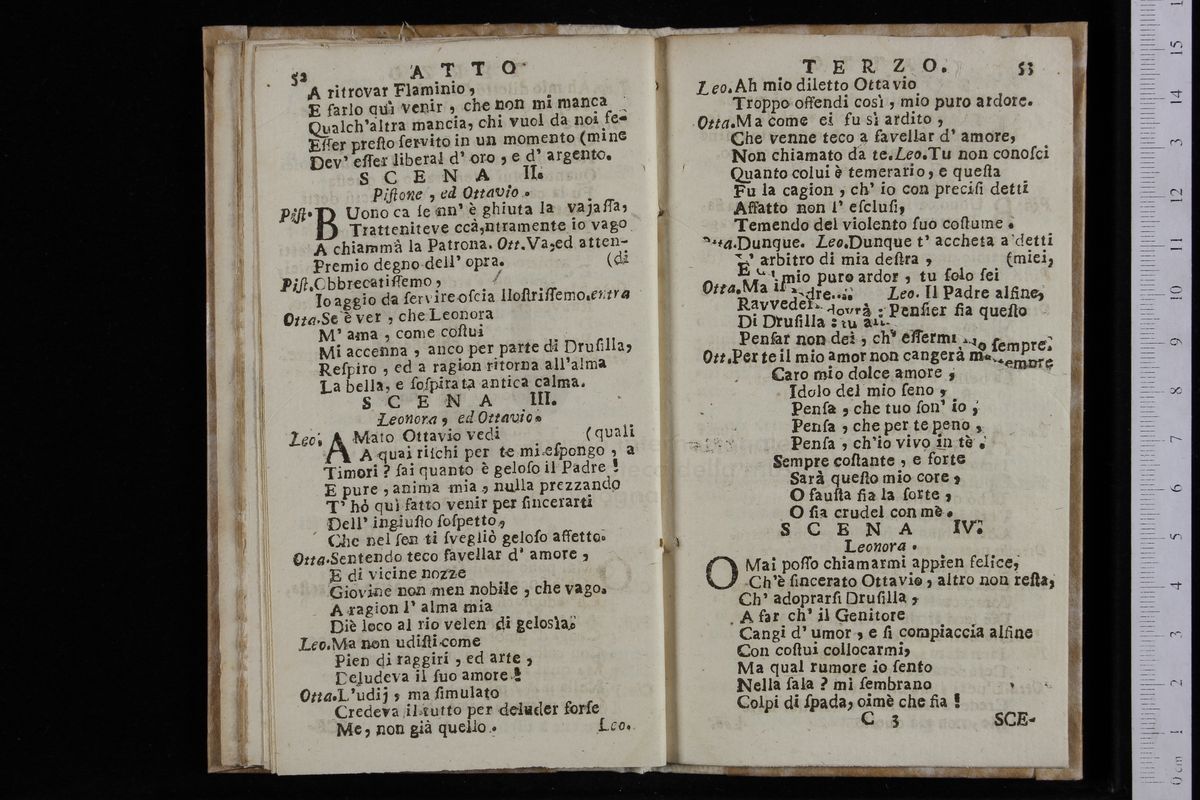 52 ATTO
A ritrovar Flaminio,
E farlo quì venir, che non mi manca
Qualch'altra mancia, chi vuol da noi fe-
Eſſer preſto ſervito in un momento (mine
Dev' eſſer liberal d' oro, e d' argento.
SCENA II.
Piſtone, ed Ottavio.
Piſt. BUono ca ſe nn' è ghiuta la vajaſſa,
Tratteniteve ccà, ntramente io vago
A chiammà la Patrona. Ott. Va, ed atten-
Premio degno dell' opra. (di
Piſt. Obbrecatiſſemo,
Io aggio da ſervire oſcia lloſtriſſemo. entra
Otta. Se è ver, che Leonora
M' ama, come coſtui
Mi accenna, anco per parte di Druſilla,
Reſpiro, ed a ragion ritorna all'alma
La bella, e ſoſpirata antica calma.
SCENA III.
Leonora, ed Ottavio.
Leo. AMato Ottavio vedi (quali
A quai riſchi per te mi eſpongo, a
Timori? ſai quanto è geloſo il Padre!
E pure, anima mia, nulla prezzando
T' hò quì fatto venir per ſincerarti
Dell' ingiuſto ſoſpetto,
Che nel ſen ti ſvegliò geloſo affetto.
Otta. Sentendo teco favellar d' amore,
E di vicine nozze
Giovine non men nobile, che vago.
A ragion l' alma mia
Diè loco al rio velen di gelosìa.
Leo. Ma non udiſti come
Pien di raggiri, ed arte,
Deludeva il ſuo amore!
Otta. L'udij, ma ſimulato
Credeva il tutto per deluder forſe
Me, non già quello. Leo.
TERZO. 53
Leo. Ah mio diletto Ottavio
Troppo offendi così, mio puro ardore.
Otta. Ma come ei fu sì ardito,
Che venne teco a favellar d' amore,
Non chiamato da te. Leo. Tu non conoſci
Quanto colui è temerario, e queſta
Fu la cagion, ch' io con preciſi detti
Affatto non l' eſcluſi,
Temendo del violento ſuo coſtume.
Otta. Dunque. Leo. Dunque t' accheta a detti
arbitro di mia deſtra, (miei,
E mio puro ardor, tu ſolo ſei
Otta. Ma Leo. Il Padre alfine,
dovrà: Penſier ſia queſto
Di Druſilla: tu
Penſar non dei, ch' eſſermi ſempre.
Ott. Per te il mio amor non cangerà
Caro mio dolce amore,
Idolo del mio ſeno,
Penſa, che tuo ſon' io,
Penſa, che per te peno,
Penſa, ch'io vivo in tè.
Sempre coſtante, e forte
Sarà queſto mio core,
O fauſta ſia la ſorte,
O ſia crudel con mè.
SCENA IV.
Leonora.
OMai poſſo chiamarmi appien felice,
Ch'è ſincerato Ottavio, altro non reſta,
Ch' adoprarſi Druſilla,
A far ch' il Genitore
Cangi d' umor, e ſi compiaccia alfine
Con coſtui collocarmi,
Ma qual rumore io ſento
Nella ſala? mi ſembrano
Colpi di ſpada, oimè che ſia!
C 3 SCE-